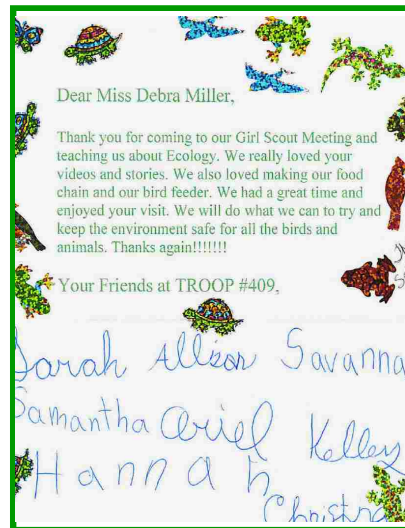 Dear Miss Debra Miller,
Thank you for coming to our Girl Scout Meeting and
teaching us about Ecology. We really loved your
videos and stories. We also loved making our food
chain and our bird feeder. We had a great time and
enjoyed your visit. We will do what we can to try and
keep the environment safe for all the birds and
animals. Thanks again!!!!!!!
Your Friends at TROOP #409,
Sarah Allison Savanna
Samantha Ariel Kelley
Hannah
Christina